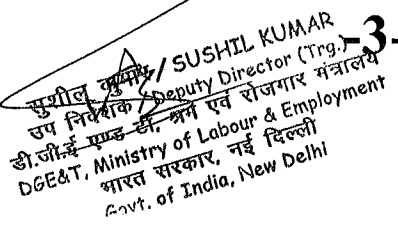 -3-
सुशील कुमार / SUSHIL KUMAR
उप निदेशक / Deputy Director (Trg.)
डी.जी.ई. एण्ड टी. श्रम एवं रोजगार मंत्रालय
DGE&T, Ministry of Labour & Employment
भारत सरकार, नई दिल्ली
Govt. of India, New Delhi